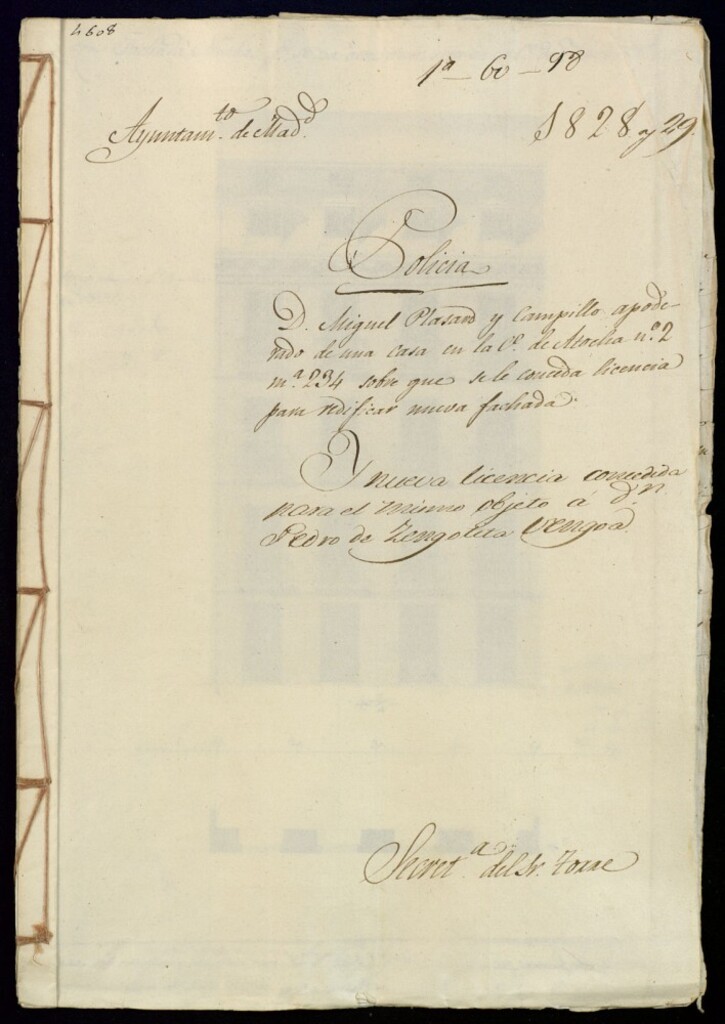 4608
1ª - 60 - 98
Ayuntamto. de Madd.
1828 y 29.
Policia
D. Miguel Plasard y Campillo apode-
rado de una casa en la Ce. de Atocha nº. 2
mª. 234 sobre que se le conceda licencia
para redificar nueva fachada.
Y nueva licencia concedida
para el mismo objeto á dn.
Pedro de Zengotita Vengoa.
Secreta. del Sr. Torre